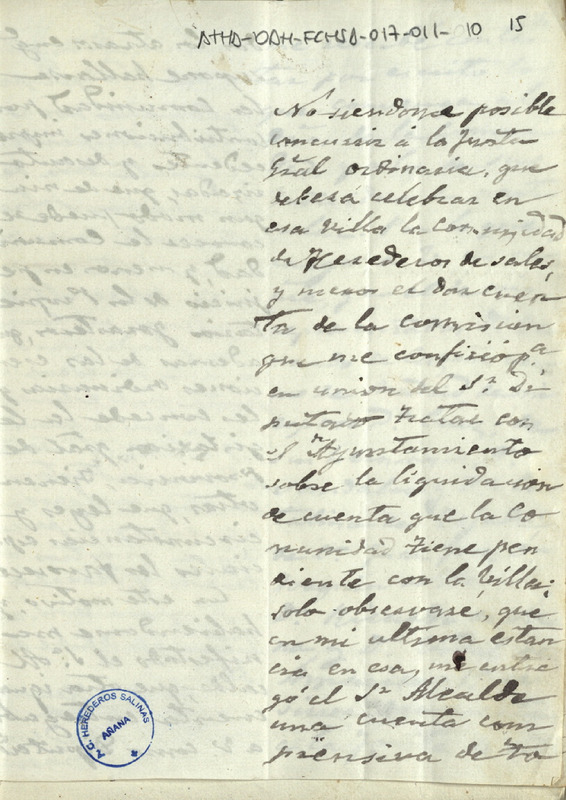 ATHA-DAH-FCHSA-017-011-10 15
No siendome posible
concurrir á la Junta
Gral ordinaria, que
deberá celebrar en
esa villa la comunidad
de Herederos de sales,
y menos el dar cuen
ta de la comision
que me confirió pa
en union del Sr. Di
putado tratar con
el Ayuntamiento
sobre la liquidacion
de cuenta que la Co
munidad tiene pen
diente con la Villa:
solo observaré, que
en mi ultima estan
cia en esa, me entre
gó el Sr Alcalde
una cuenta com
prensiva de to
A. C. HEREDEROS SALINAS
AÑANA